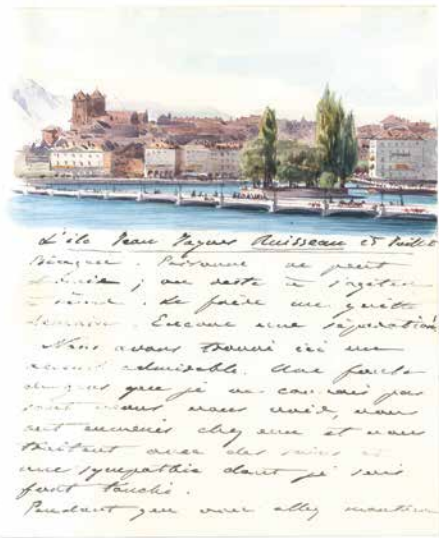 L'île Jean Jaques Rousseau 25 Juillet
Personne ne peut
; on reste à
. Le frère me quitte
demain. Encore une séparation.
Nous avons trouvé ici un
accueil admirable. Une foule
de gens que je ne connais pas
sont venus nous voir, nous
ont emmenés chez eux et nous
traitent avec des soins et
une sympathie dont je suis
fort touché.
Pendant que vous allez